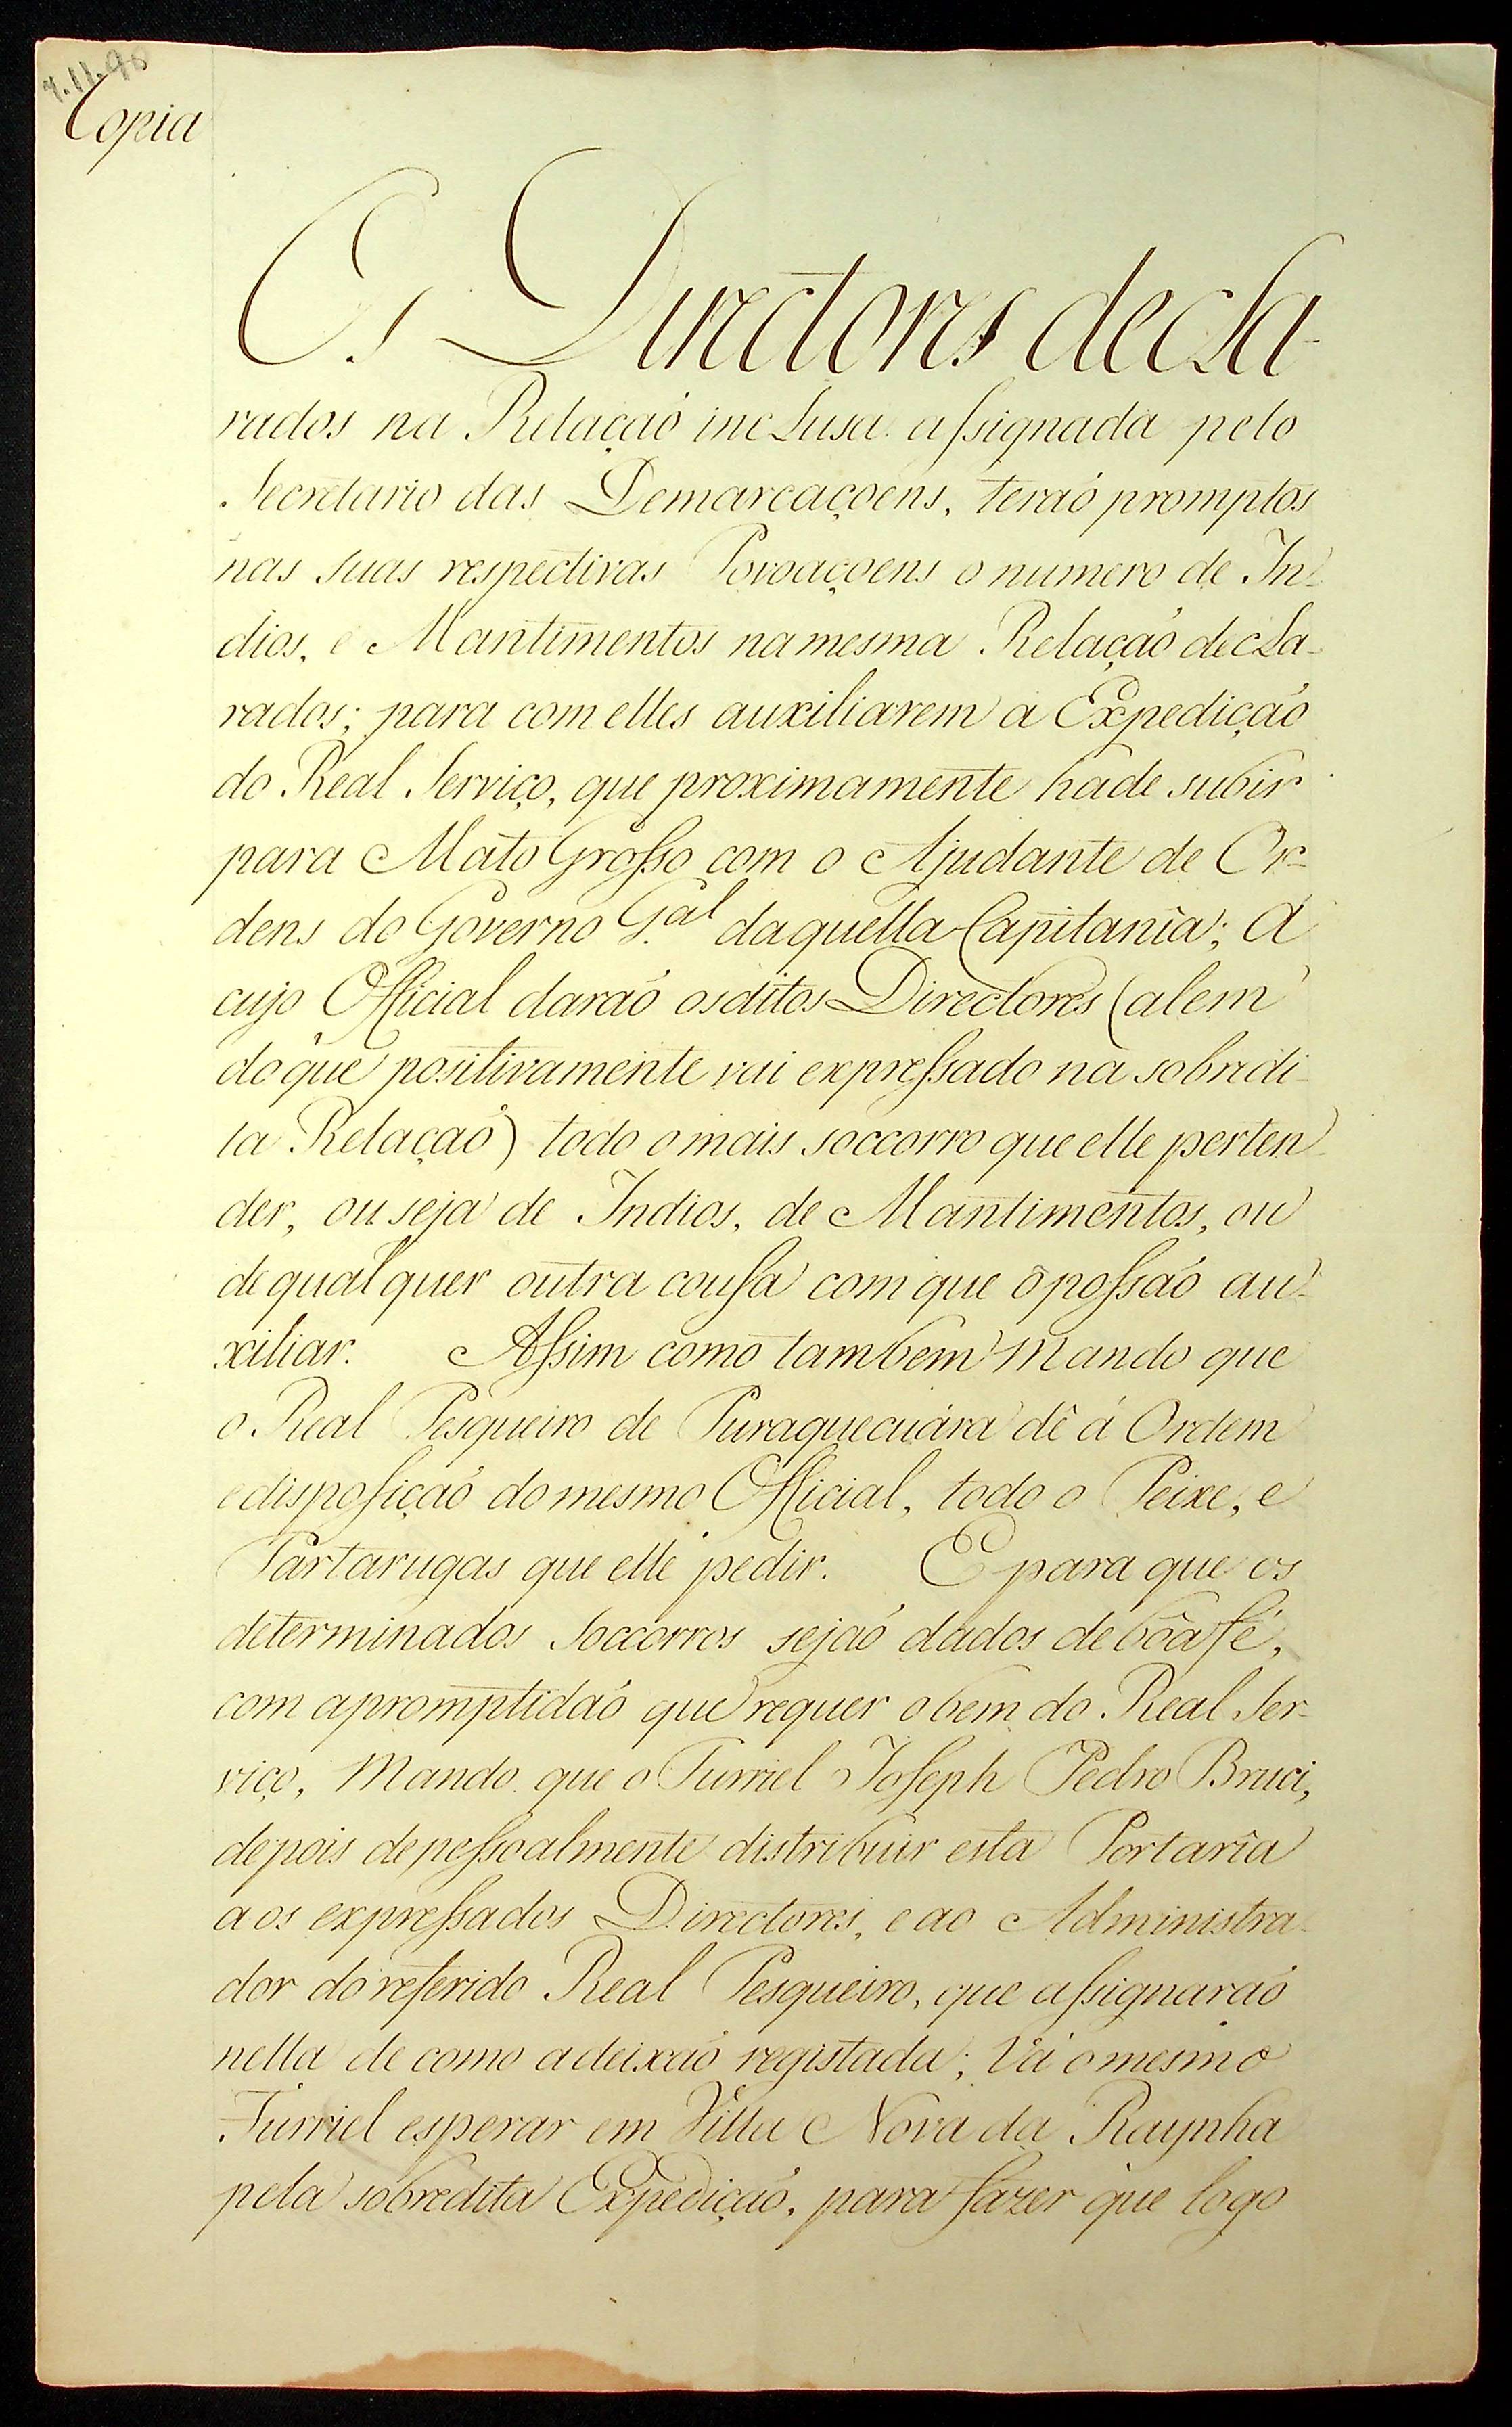 7.11.90
Copia
Os Directores decla-
rados na Relaçaõ inclusa assignada pelo
Secretario das Demarcaçoens, teraõ promptos
nas suas respectivas Povoaçoens o numero de In-
dios, e Mantimentos na mesma Relaçaõ decla-
rados; para com elles auxiliarem a Expediçaõ
do Real Serviço, que proximamente hade subir
para Mato Grosso com o Ajudante de Or-
dens do Governo G.al daquella Capitanîa; A
cujo Official daraõ os ditos Directores (alem
do que positivamente vai expressado na sobredi-
ta Relaçaõ) todo o mais soccorro que elle perten-
der, ou seja de Indios, de Mantimentos, ou
de qualquer outra cousa com que o possaõ au-
xiliar. Assim como tambem Mando que
o Real Pesqueiro de Puraquecuára dê á Ordem
e disposiçaõ do mesmo Official, todo o Peixe, e
Tartarugas que elle pedir. E para que os
determinados soccorros sejaõ dados de bôa fé,
com a promptidaõ que requer o bem do Real Ser-
viço, Mando que o Furriel Joseph Pedro Bruci,
depois de pessoalmente distribuir esta Portarîa
aos expressados Directores, e ao Administra-
dor do referido Real Pesqueiro, que assignaraõ
nella de como a deixaõ registada; Vá o mesmo
Furriel esperar em Villa Nova da Raynha
pela sobredita Expediçaõ, para fazer que logo